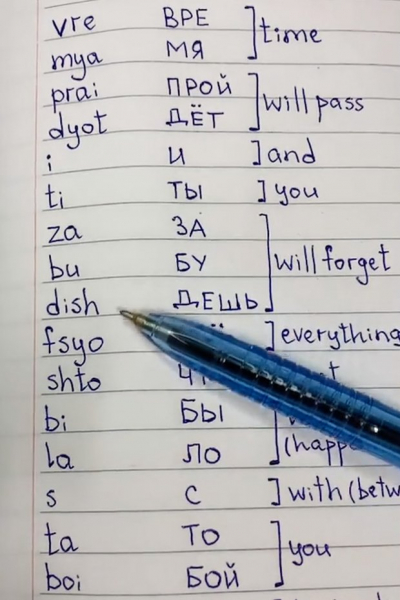 vre ВРЕ time
mya МЯ
prai ПРОЙ will pass
dyot ДЁТ
i И and
ti ТЫ you
za ЗА
bu БУ will forget
dish ДЕШЬ
fsyo everything
shto
bi БЫ
la ЛО
s С with
ta ТО you
boi БОЙ